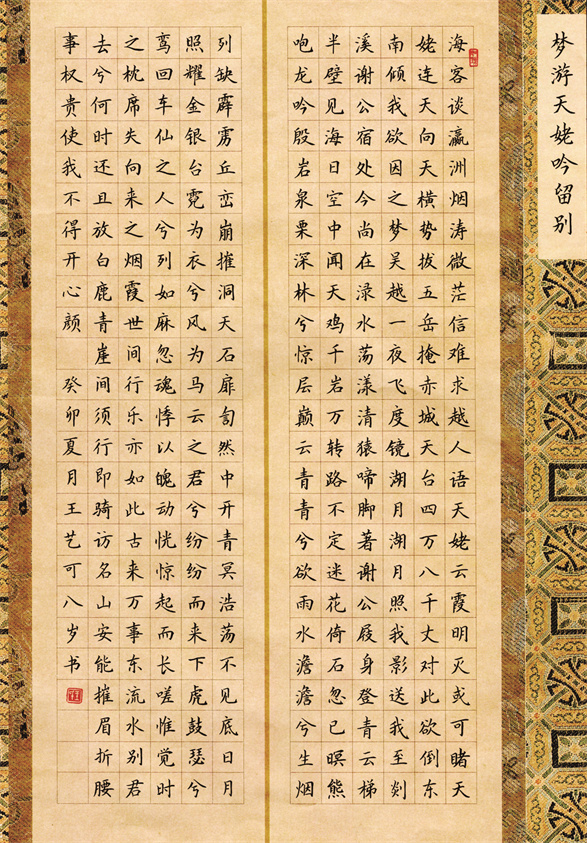 梦游天姥吟留别
海客谈瀛洲烟涛微茫信难求越人语天姥云霞明灭或可睹天
姥连天向天横势拔五岳掩赤城天台四万八千丈对此欲倒东
南倾我欲因之梦吴越一夜飞度镜湖月湖月照我影送我至剡
溪谢公宿处今尚在渌水荡漾清猿啼脚著谢公屐身登青云梯
半壁见海日空中闻天鸡千岩万转路不定迷花倚石忽已暝熊
咆龙吟殷岩泉栗深林兮惊层巅云青青兮欲雨水澹澹兮生烟
列缺霹雳丘峦崩摧洞天石扉訇然中开青冥浩荡不见底日月
照耀金银台霓为衣兮风为马云之君兮纷纷而来下虎鼓瑟兮
鸾回车仙之人兮列如麻忽魂悸以魄动恍惊起而长嗟惟觉时
之枕席失向来之烟霞世间行乐亦如此古来万事东流水别君
去兮何时还且放白鹿青崖间须行即骑访名山安能摧眉折腰
事权贵使我不得开心颜 癸卯夏月王艺可八岁书